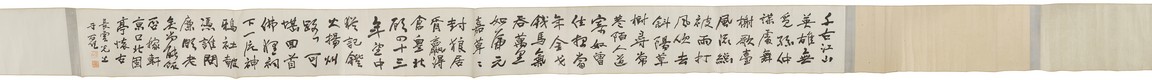 千古江山
英雄無
覓孫仲
謀處舞
榭歌臺
風流總
被雨打
風吹去
斜陽草
樹尋常
巷陌人道
寄奴曾
住想當
年金戈
鐵馬氣
吞萬里
如虎元
嘉草草
封狼居
胥贏得
倉皇北
顧四十三
年望中
猶記燈
火揚州
路可
堪回首
佛狸祠
下一片神
鴉社鼓
憑誰問
廉頗老
矣尚能飯
否稼軒
京口北固
亭懷古